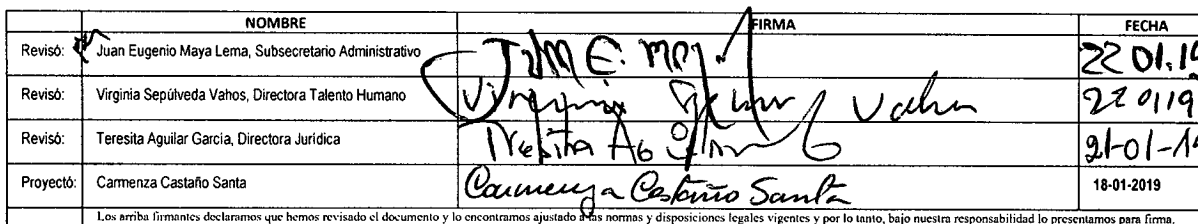 NOMBRE FIRMA FECHA
Revisó: Juan Eugenio Maya Lema, Subsecretario Administrativo 22 01.19
Revisó: Virginia Sepúlveda Vahos, Directora Talento Humano Virginia Vahos 220119
Revisó: Teresita Aguilar García, Directora Jurídica Teresita 21-01-19
Proyectó: Carmenza Castaño Santa Carmenza Castaño Santa 18-01-2019
Los arriba firmantes declaramos que hemos revisado el documento y lo encontramos ajustado a las normas y disposiciones legales vigentes y por lo tanto, bajo nuestra responsabilidad lo presentamos para firma.